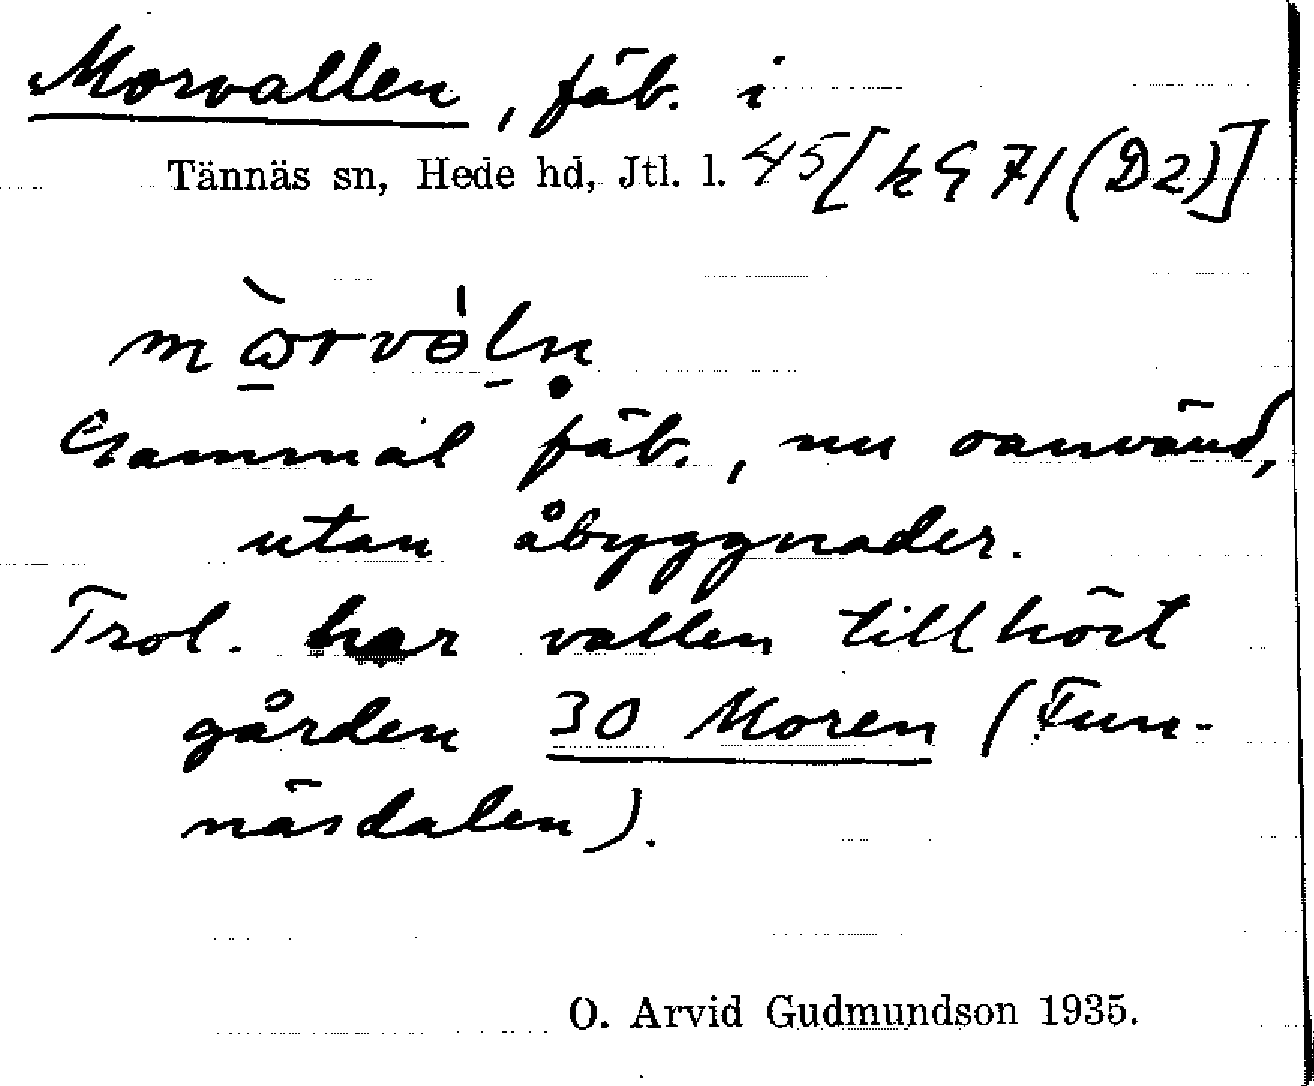 Morvallen, fäb. i
Tännäs sn, Hede hd, Jtl. l. 45 [k G 71 (D2)]
Gammal fäb., nu oanvänd,
utan åbyggnader.
Trol. har vallen tillhört
gården 30 Moren (Fun-
näsdalen).
O. Arvid Gudmundson 1935.